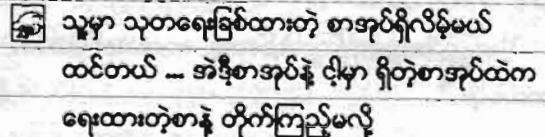 သူ့မှာ သုတရေးခြစ်ထားတဲ့ စာအုပ်ရှိလိမ့်မယ်
ထင်တယ် ... အဲဒီ့စာအုပ်နဲ့ ငါ့မှာ ရှိတဲ့စာအုပ်ထဲက
ရေးထားတဲ့စာနဲ့ တိုက်ကြည့်မလို့